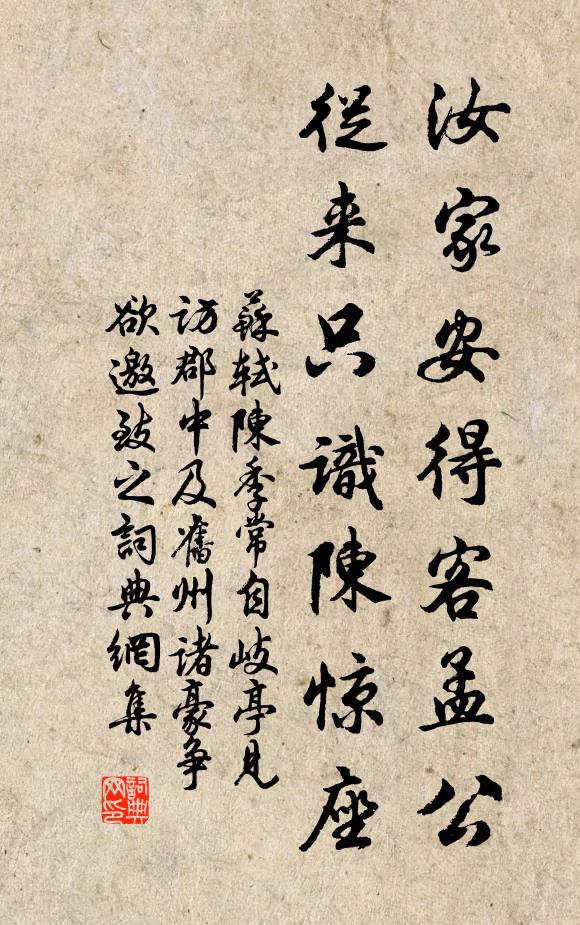 汝家安得客孟公
從来只識陳惊座
蘇軾陳季常自岐亭見
訪郡中及舊州诸豪争
欲邀致之詞典網集
詞典
网印